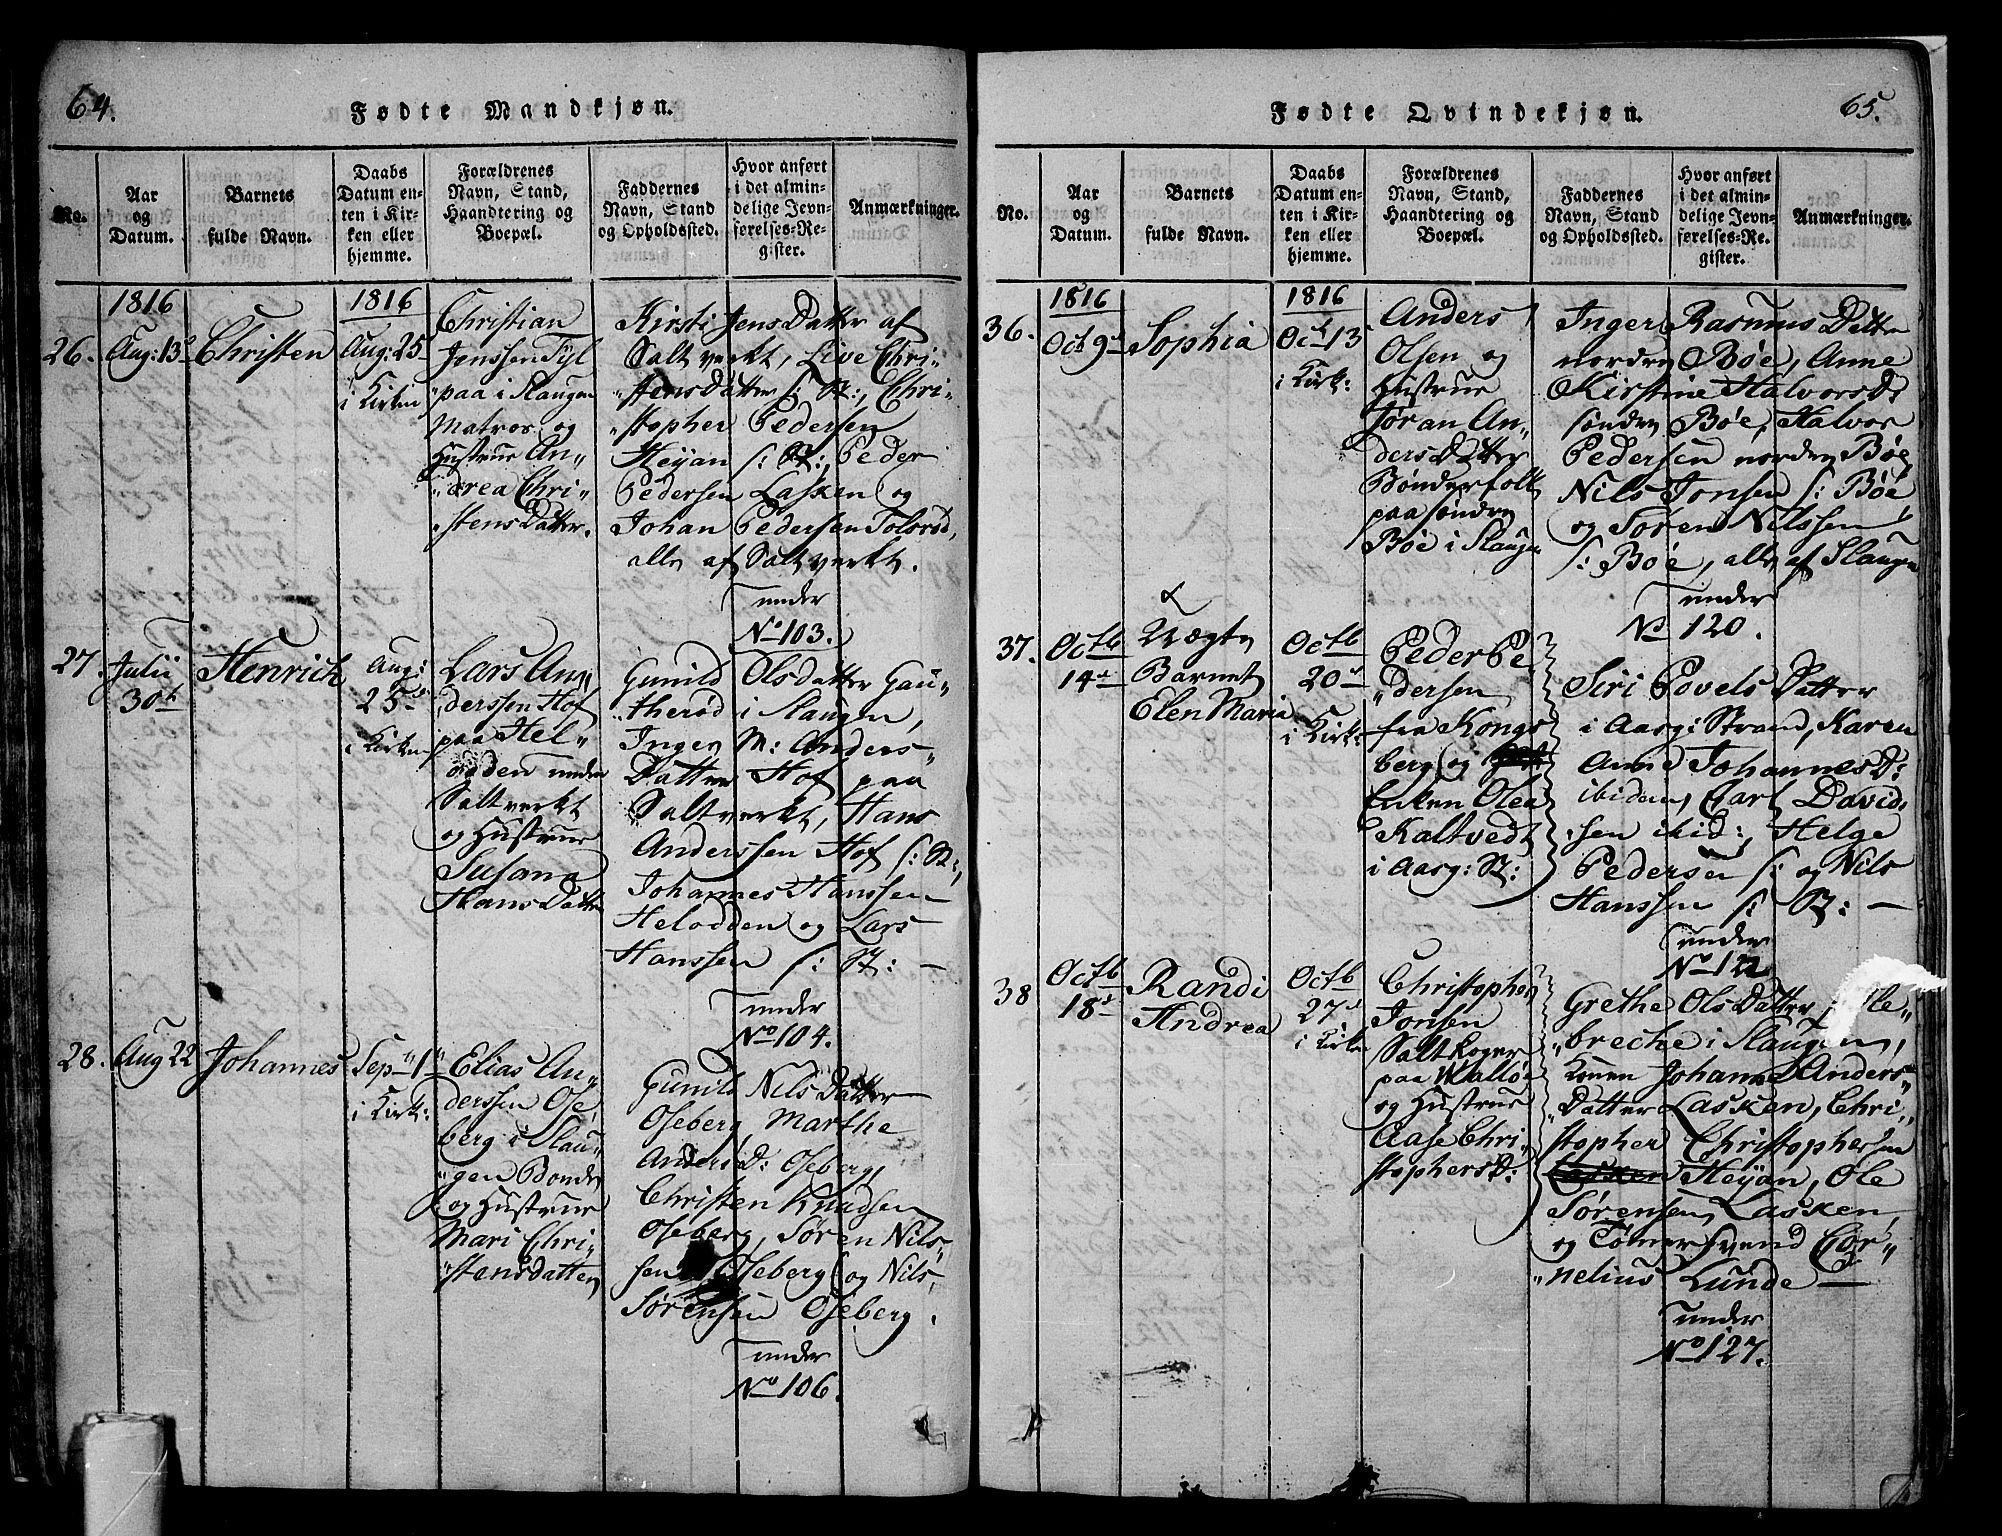 64.
Fødte Mandkjøn.
No.
Aar
og
Datum.
Barnets
fulde Navn.
Daabs
Datum en-
ten i Kir-
ken eller
hjemme.
Forældrenes
Navn, Stand,
Haandtering og
Boepæl.
Faddernes
Navn, Stand
og Opholdssted.
Hvor anført
i det almin-
delige Jevn-
førelses-Re-
gister.
Anmærkninger.
26.
1816
Aug: 13d
Christen
1816
Aug: 25d
i Kirken
Christian
Jenssen
paa i Slaugen
Matros og
Hustrue An„
„drea Chri„
„stens Datter.
Kirsti Jens Datter af
Saltverket, Live Chri„
„stens Datter s: St:, Chri„
„stopher Pedersen
Heyan s: St:, Peder
Pedersen Lasken og
Johan Pedersen Tolsrød,
alle af Saltverket.
under
No 103.
27.
Julii
30te
Henrich
Aug:
25de
i Kirken
Lars An„
derssen Hof
paa Hel„
odden under
Saltverket
og Hustrue
Susana
Hans Datter
Gunild Olsdatter Gau„
„therød i Slaugen,
Inger M: Anders„
Datter Hof paa
Saltverket, Hans
Anderssen Hof s: St:,
Johannes Hanssen
Helodden og Lars
Hanssen s: St: —
under
No 104.
28.
Aug 22
Johannes
Sep" 1"
i Kirk:
Elias An„
derssen Ose„
berg i Slau„
„gen Bonde
og Hustrue
Mari Chri„
„stensdatter
Gunild Nils Datter
Oseberg, Marthe
Anders D: Oseberg,
Christen Knudsen
Oseberg, Søren Nils„
sen Oseberg og Nils
Sørensen Oseberg.
under
No 106.
65.
Fødte Qvindekjøn.
No.
Aar
og
Datum.
Barnets
fulde Navn.
Daabs
Datum en-
ten i Kir-
ken eller
hjemme.
Forældrenes
Navn, Stand,
Haandtering og
Boepæl.
Faddernes
Navn, Stand
og Opholdssted.
Hvor anført
i det almin-
delige Jevn-
førelses-Re-
gister.
Anmærkninger.
36.
1816
Oct 9d
Sophia
1816
Oct 13
i Kirk:
Anders
Olsen og
Hustrue
Jøran An„
ders Datter
Bønderfolk
paa søndre
Bøe i Slaugen
Inger Rasmus Datter
nordre Bøe, Anne
Kirstine Halvors D:
søndre Bøe, Halvor
Pedersen nordre Bøe,
Nils Jonsen s: Bøe
og Søren Nilssen
s: Bøe, alle af Slaugen
under
No 120.
37.
Octb
14d
Uægte
Barnet
Elen Maria
Octb
20d
i Kirk:
Peder Pe„
„dersen
fra Kongs
berg og
Enken Olea
Kaltvedt
i Aasg: St:
Siri Povels Datter
i Aasg: Strand, Karen
Anne Johannes D:
ibidem, Carl David„
„sen ibid:, Helge
Pedersen s: og Nils
Hanssen s: St: —
under
No 122
38
Octb
18d
Randi
Andrea
Octb
27d
i Kirken
Christopher
Jonsen
Saltkoger
paa Walløe
og Hustrue
Aase Chri„
stophers D:
Grethe Ols Datter
„breche i Slaugen,
Konen Johanne Anders„
„Datter Lasken, Chri„
stopher Christophersen
Heyan, Ole
Sørensen Lasken,
og Tømersvend Cor„
„nelius Lunde —
under
No 127.